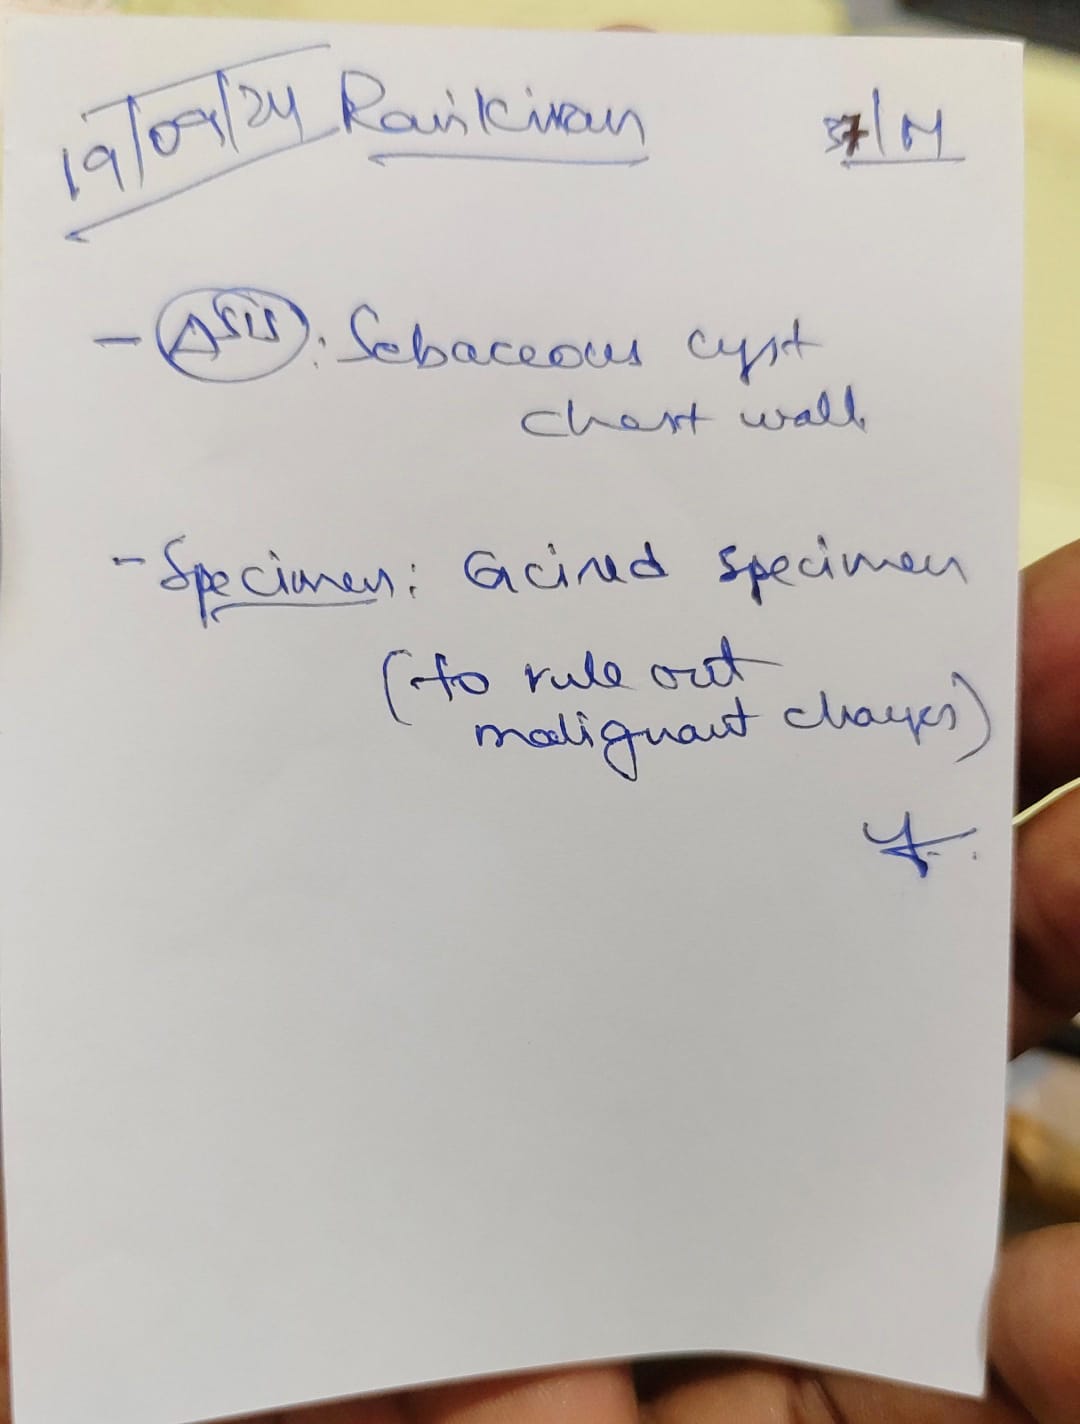 19/09/24 Ravikiran 37/M
- Δsis: Sebaceous cyst
chest wall
- Specimen: Excised specimen
(to rule out
malignant changes)